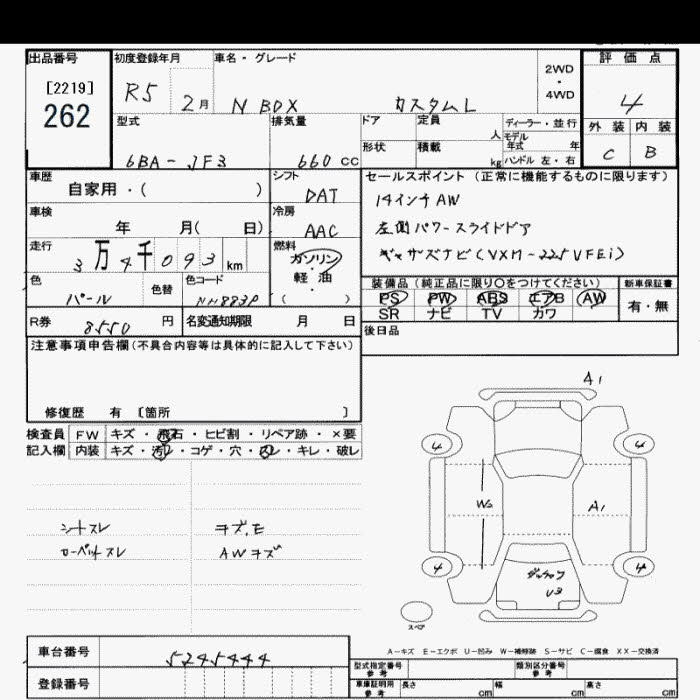 出品番号
[2219]
262
初度登録年月
R5 2月
車名・グレード
N BOX カスタムL
2WD
・
4WD
評価点
4
外装 内装
C B
型式
6BA-JF3
排気量
660 cc
ドア
定員
人
形状
積載
kg
ディーラー・並行
モデル年式 年
ハンドル 左・右
車歴
自家用・( )
シフト
DAT
車検
年 月( 日)
冷房
AAC
走行
3万4千093km
燃料
ガソリン
・
軽油
( )
色
パール
色替
色コード
NH883P
R券
8550円
名変通知期限 月 日
セールスポイント (正常に機能するものに限ります)
14インチAW
左側パワースライドドア
ギャザズナビ(VXM-225VFEi)
装備品(純正品に限り○をつけてください)
PS PW ABS エアB AW
SR ナビ TV カワ
新車保証書
有・無
後日品
注意事項申告欄(不具合内容等は具体的に記入して下さい)
修復歴 有 〔箇所 〕
検査員 FW キズ・飛石・ヒビ割・リペア跡・×要
記入欄 内装 キズ・汚レ・コゲ・穴・スレ・キレ・破レ
シートスレ
AWキズ
A1
4 4
W2 A1
4 4
U3
スペア
A-キズ E-エクボ U-凹み W-補修跡 S-サビ C-腐食 XX-交換済
車台番号
5245444
登録番号
型式指定番号
参考
類別区分番号
参考
車庫証明用
参考
長さ cm 幅 cm 高さ cm